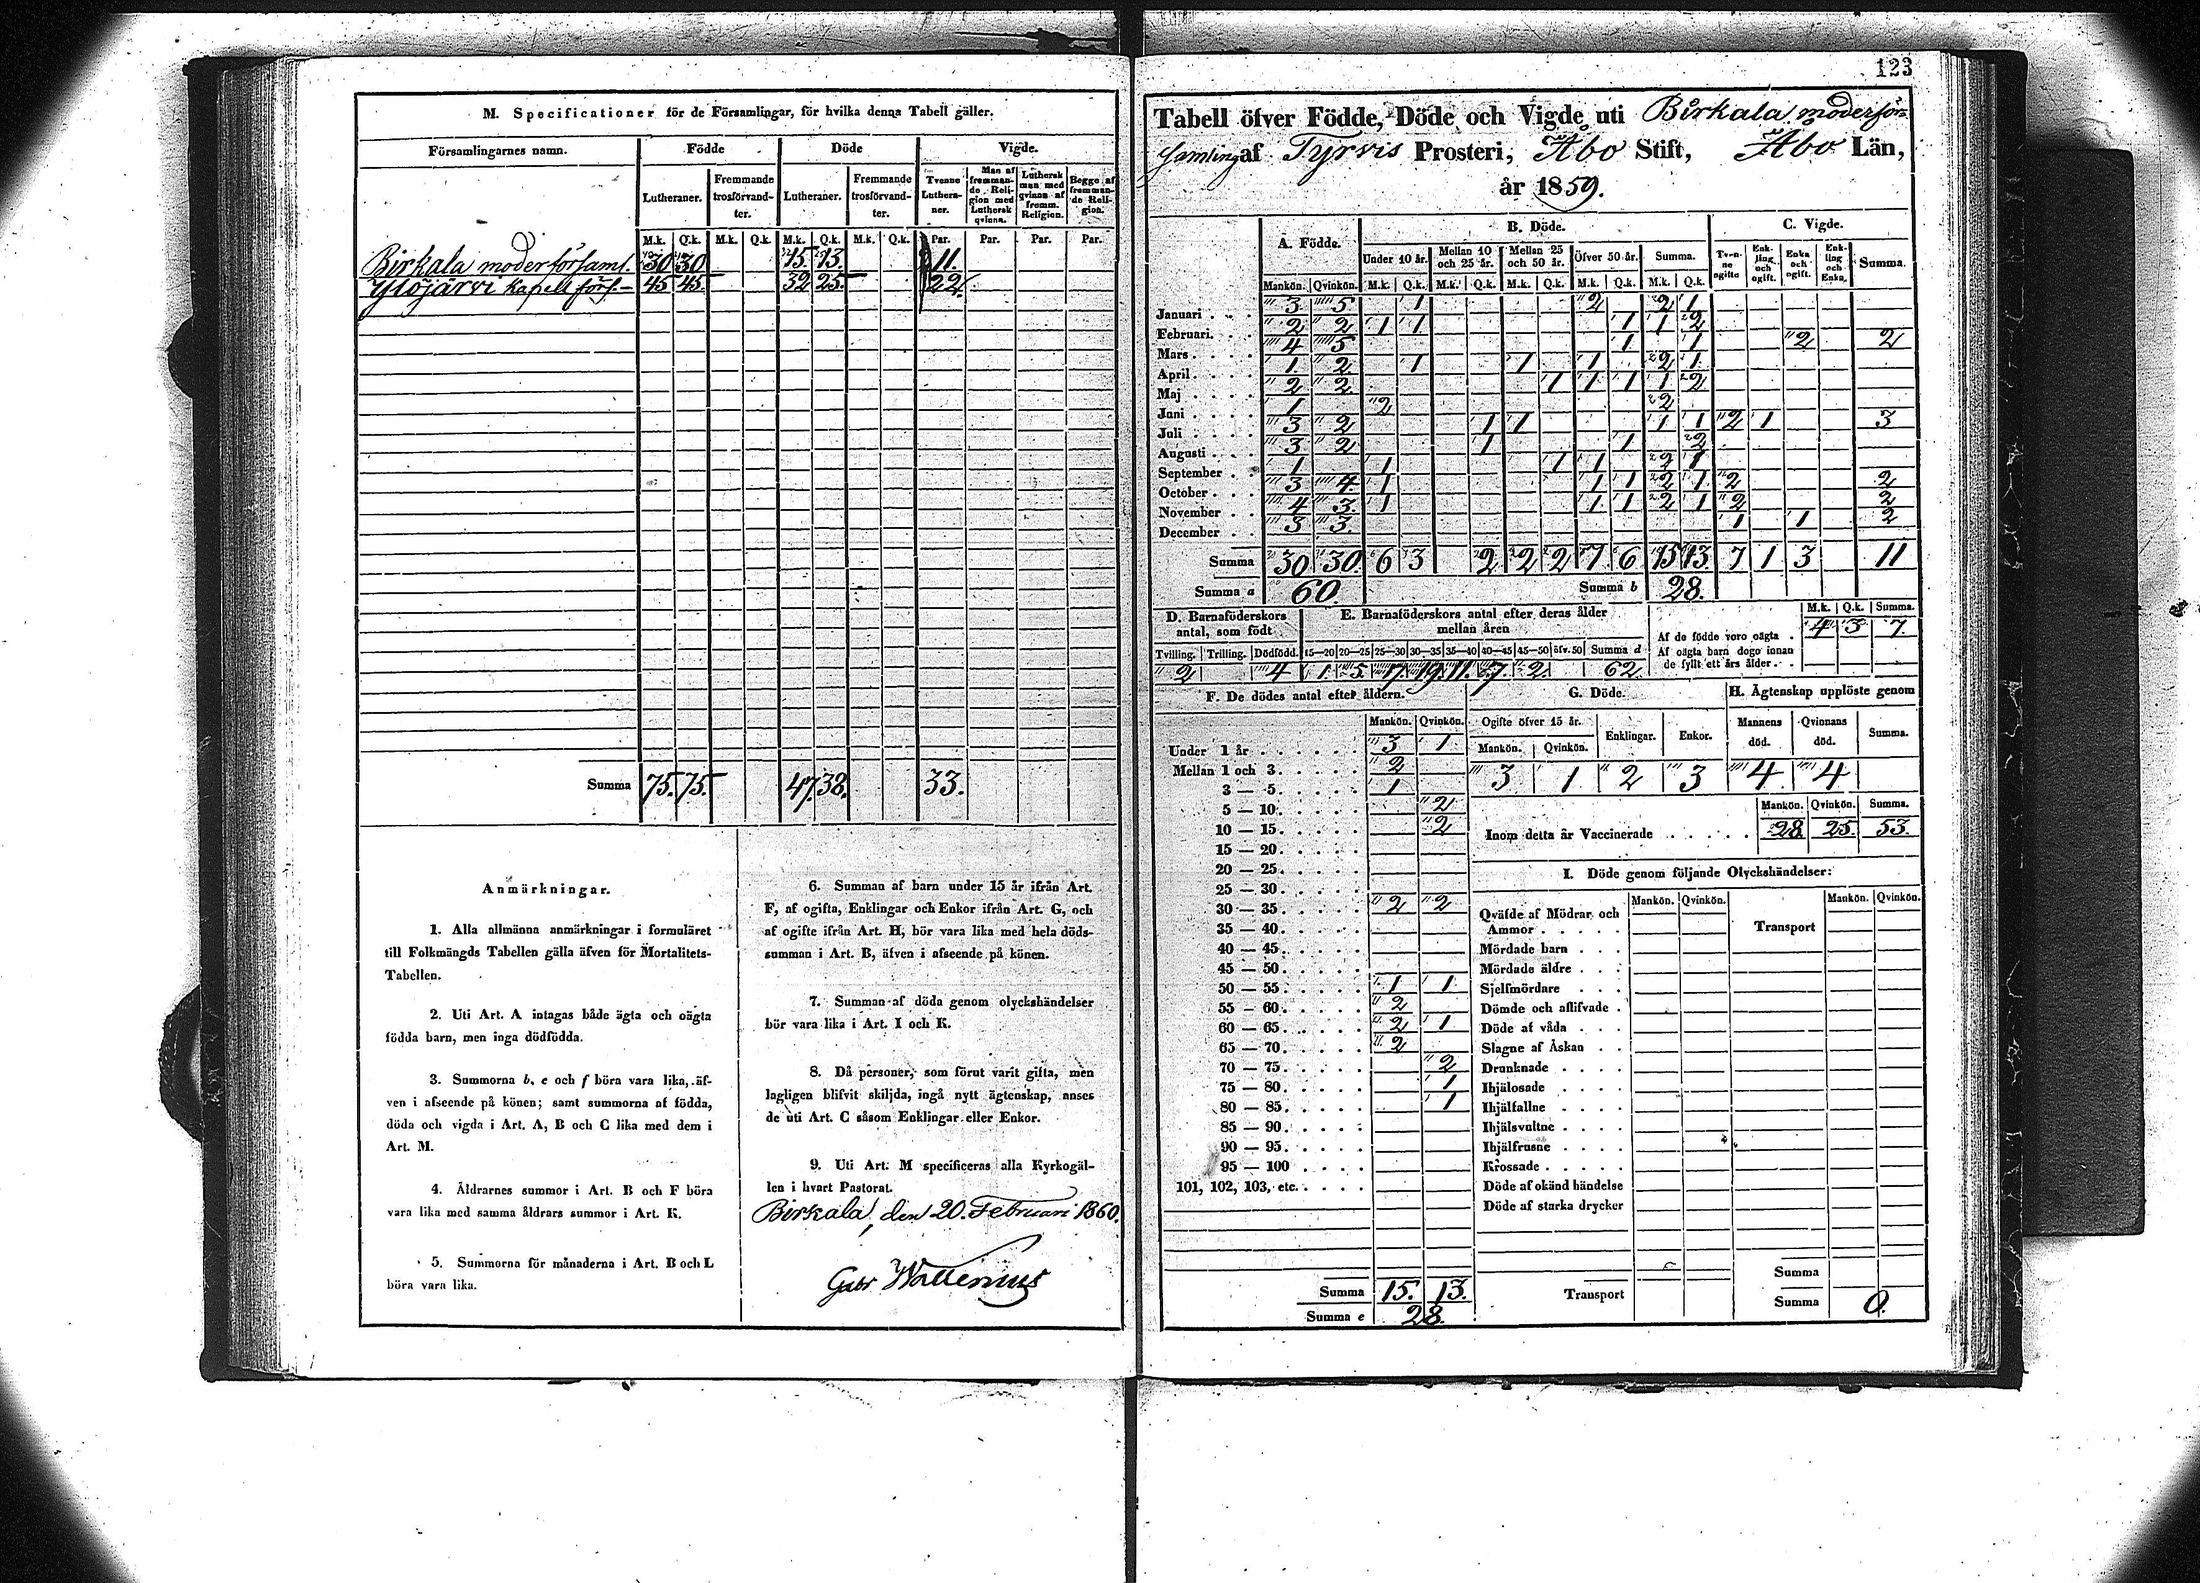 M. Specificationer för de Församlingar, för hvilka denna Tabell gäller.
Församlingarnes namn. Födde Döde Vigde.
Lutheraner. Fremmande trosförvandter. Lutheraner. Fremmande trosförvandter. Tvenne Lutheraner. Man af fremmande Religion med Luthersk qvinna. Luthersk man med qvinna af fremm. Religion. Begge af fremmande Religion.
M.k. Q.k. M.k. Q.k. M.k. Q.k. M.k. Q.k. Par. Par. Par. Par.
Birkala moderförsaml. 30 30 15. 13. 11.
Ylöjärvi kapellförs. 45 45 32 25 22.
Summa 75. 75. 47. 38. 33.
Anmärkningar.
1. Alla allmänna anmärkningar i formuläret
till Folkmängds Tabellen gälla äfven för Mortalitets-
Tabellen.
2. Uti Art. A intagas både ägta och oägta
födda barn, men inga dödfödda.
3. Summorna b, e och f böra vara lika, äf-
ven i afseende på könen; samt summorna af födda,
döda och vigda i Art. A, B och C lika med dem i
Art. M.
4. Åldrarnes summor i Art. B och F böra
vara lika med samma åldrars summor i Art. K.
5. Summorna för månaderna i Art. B och L
böra vara lika.
6. Summan af barn under 15 år ifrån Art.
F, af ogifta, Enklingar och Enkor ifrån Art. G, och
af ogifte ifrån Art. H, bör vara lika med hela döds-
summan i Art. B, äfven i afseende på könen.
7. Summan af döda genom olyckshändelser
bör vara lika i Art. I och K.
8. Då personer, som förut varit gifta, men
lagligen blifvit skiljda, ingå nytt ägtenskap, anses
de uti Art. C såsom Enklingar eller Enkor.
9. Uti Art. M specificeras alla Kyrkogäl-
len i hvart Pastorat.
Birkala, den 20. Februari 1860.
Gabr Wallenius
123
Tabell öfver Födde, Döde och Vigde uti Birkala moderför-
samling af Tyrvis Prosteri, Åbo Stift, Åbo Län,
år 1859.
A. Födde. B. Döde. C. Vigde.
Under 10 år. Mellan 10 och 25 år. Mellan 25 och 50 år. Öfver 50 år. Summa. Tvenne ogifta Enkling och ogift. Enka och ogift. Enkling och Enka. Summa.
Mankön. Qvinkön. M.k. Q.k. M.k. Q.k. M.k. Q.k. M.k. Q.k. M.k. Q.k.
Januari 3 5 1 2 2 1
Februari 2 2 1 1 1 1 2
Mars 4 5 1 1 2 2
April 1 2 1 1 1 2 1
Maj 2 2 1 1 1 1 2
Juni 1 2 2
Juli 3 2 1 1 1 1 2 1 3
Augusti 3 2 1 1 2
September 1 1 1 1 2 1
October 3 4 1 1 1 2 1 2 2
November 4 3 1 1 1 2 1 2 2
December 3 3 1 1 2
Summa 30 30 6 3 2 2 2 7 6 15 13 7 1 3 11
Summa a 60 Summa b 28.
D. Barnaföderskors antal, som födt
Tvilling. Trilling. Dödfödd.
2 4
E. Barnaföderskors antal efter deras ålder mellan åren
15—20 20—25 25—30 30—35 35—40 40—45 45—50 öfv. 50 Summa d
1 5 17 19 11 7 2 62
M.k. Q.k. Summa.
Af de födde voro oägta 4 3 7
Af oägta barn dogo innan
de fyllt ett års ålder
F. De dödes antal efter åldern.
Mankön. Qvinkön.
Under 1 år 3 1
Mellan 1 och 3 2
3 — 5 1
5 — 10 2
10 — 15 2
15 — 20
20 — 25
25 — 30
30 — 35 2 2
35 — 40
40 — 45
45 — 50
50 — 55 1 1
55 — 60 2
60 — 65 2 1
65 — 70 2
70 — 75 2
75 — 80 1
80 — 85 1
85 — 90
90 — 95
95 — 100
101, 102, 103, etc.
Summa 15. 13.
Summa e 28.
G. Döde.
Ogifte öfver 15 år. Enklingar. Enkor.
Mankön. Qvinkön.
3 1 2 3
H. Ägtenskap upplöste genom
Mannens död. Qvinnans död. Summa.
4 4
Mankön. Qvinkön. Summa.
Inom detta år Vaccinerade 28. 25. 53.
I. Döde genom följande Olyckshändelser:
Mankön. Qvinkön. Mankön. Qvinkön.
Qväfde af Mödrar och
Ammor
Transport
Mördade barn
Mördade äldre
Sjelfmördare
Dömde och aflifvade
Döde af våda
Slagne af Åskan
Drunknade
Ihjälosade
Ihjälfallne
Ihjälsvultne
Ihjälfrusne
Krossade
Döde af okänd händelse
Döde af starka drycker
Summa
Transport Summa 0.